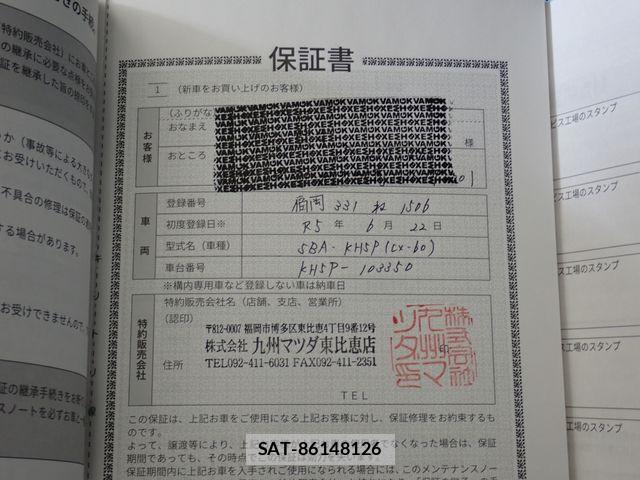 保証書
1 (新車をお買い上げのお客様)
(ふりがな
お客様
おなまえ
様
おところ
車両
登録番号 福岡 331 ね 1506
初度登録日※ R5 年 6 月 22 日
型式名(車種) 5BA-KH5P(CX-60)
車台番号 KH5P-103350
※構内専用車など登録しない車は納車日
特約販売会社
特約販売会社名(店舗、支店、営業所)
(認印)
〒812-0007 福岡市博多区東比恵4丁目9番12号
株式会社 九州マツダ東比恵店
住所 TEL092-411-6031 FAX092-411-2351
TEL
株式会社
九州マ
ツダ印
この保証は、上記お車をご使用になる上記お客様に対し、保証修理をお約束するも
のです。
SAT-86148126
保証期間内に上記お車を入手されご使用になられる場合には、このメンテナンスノー
の手続
特約販売会社)に
の継承に必要な点検を
か(事故等による大き
お受けいただくもので、
不具合の修理は保証の
する場合があります。
お受けできませんので、
証の継承手続きを
スノートを必ずお車に
ビス工場のスタンプ
ス工場のスタンプ
ス工場のスタンプ
工場のスタンプ
工場のスタンプ